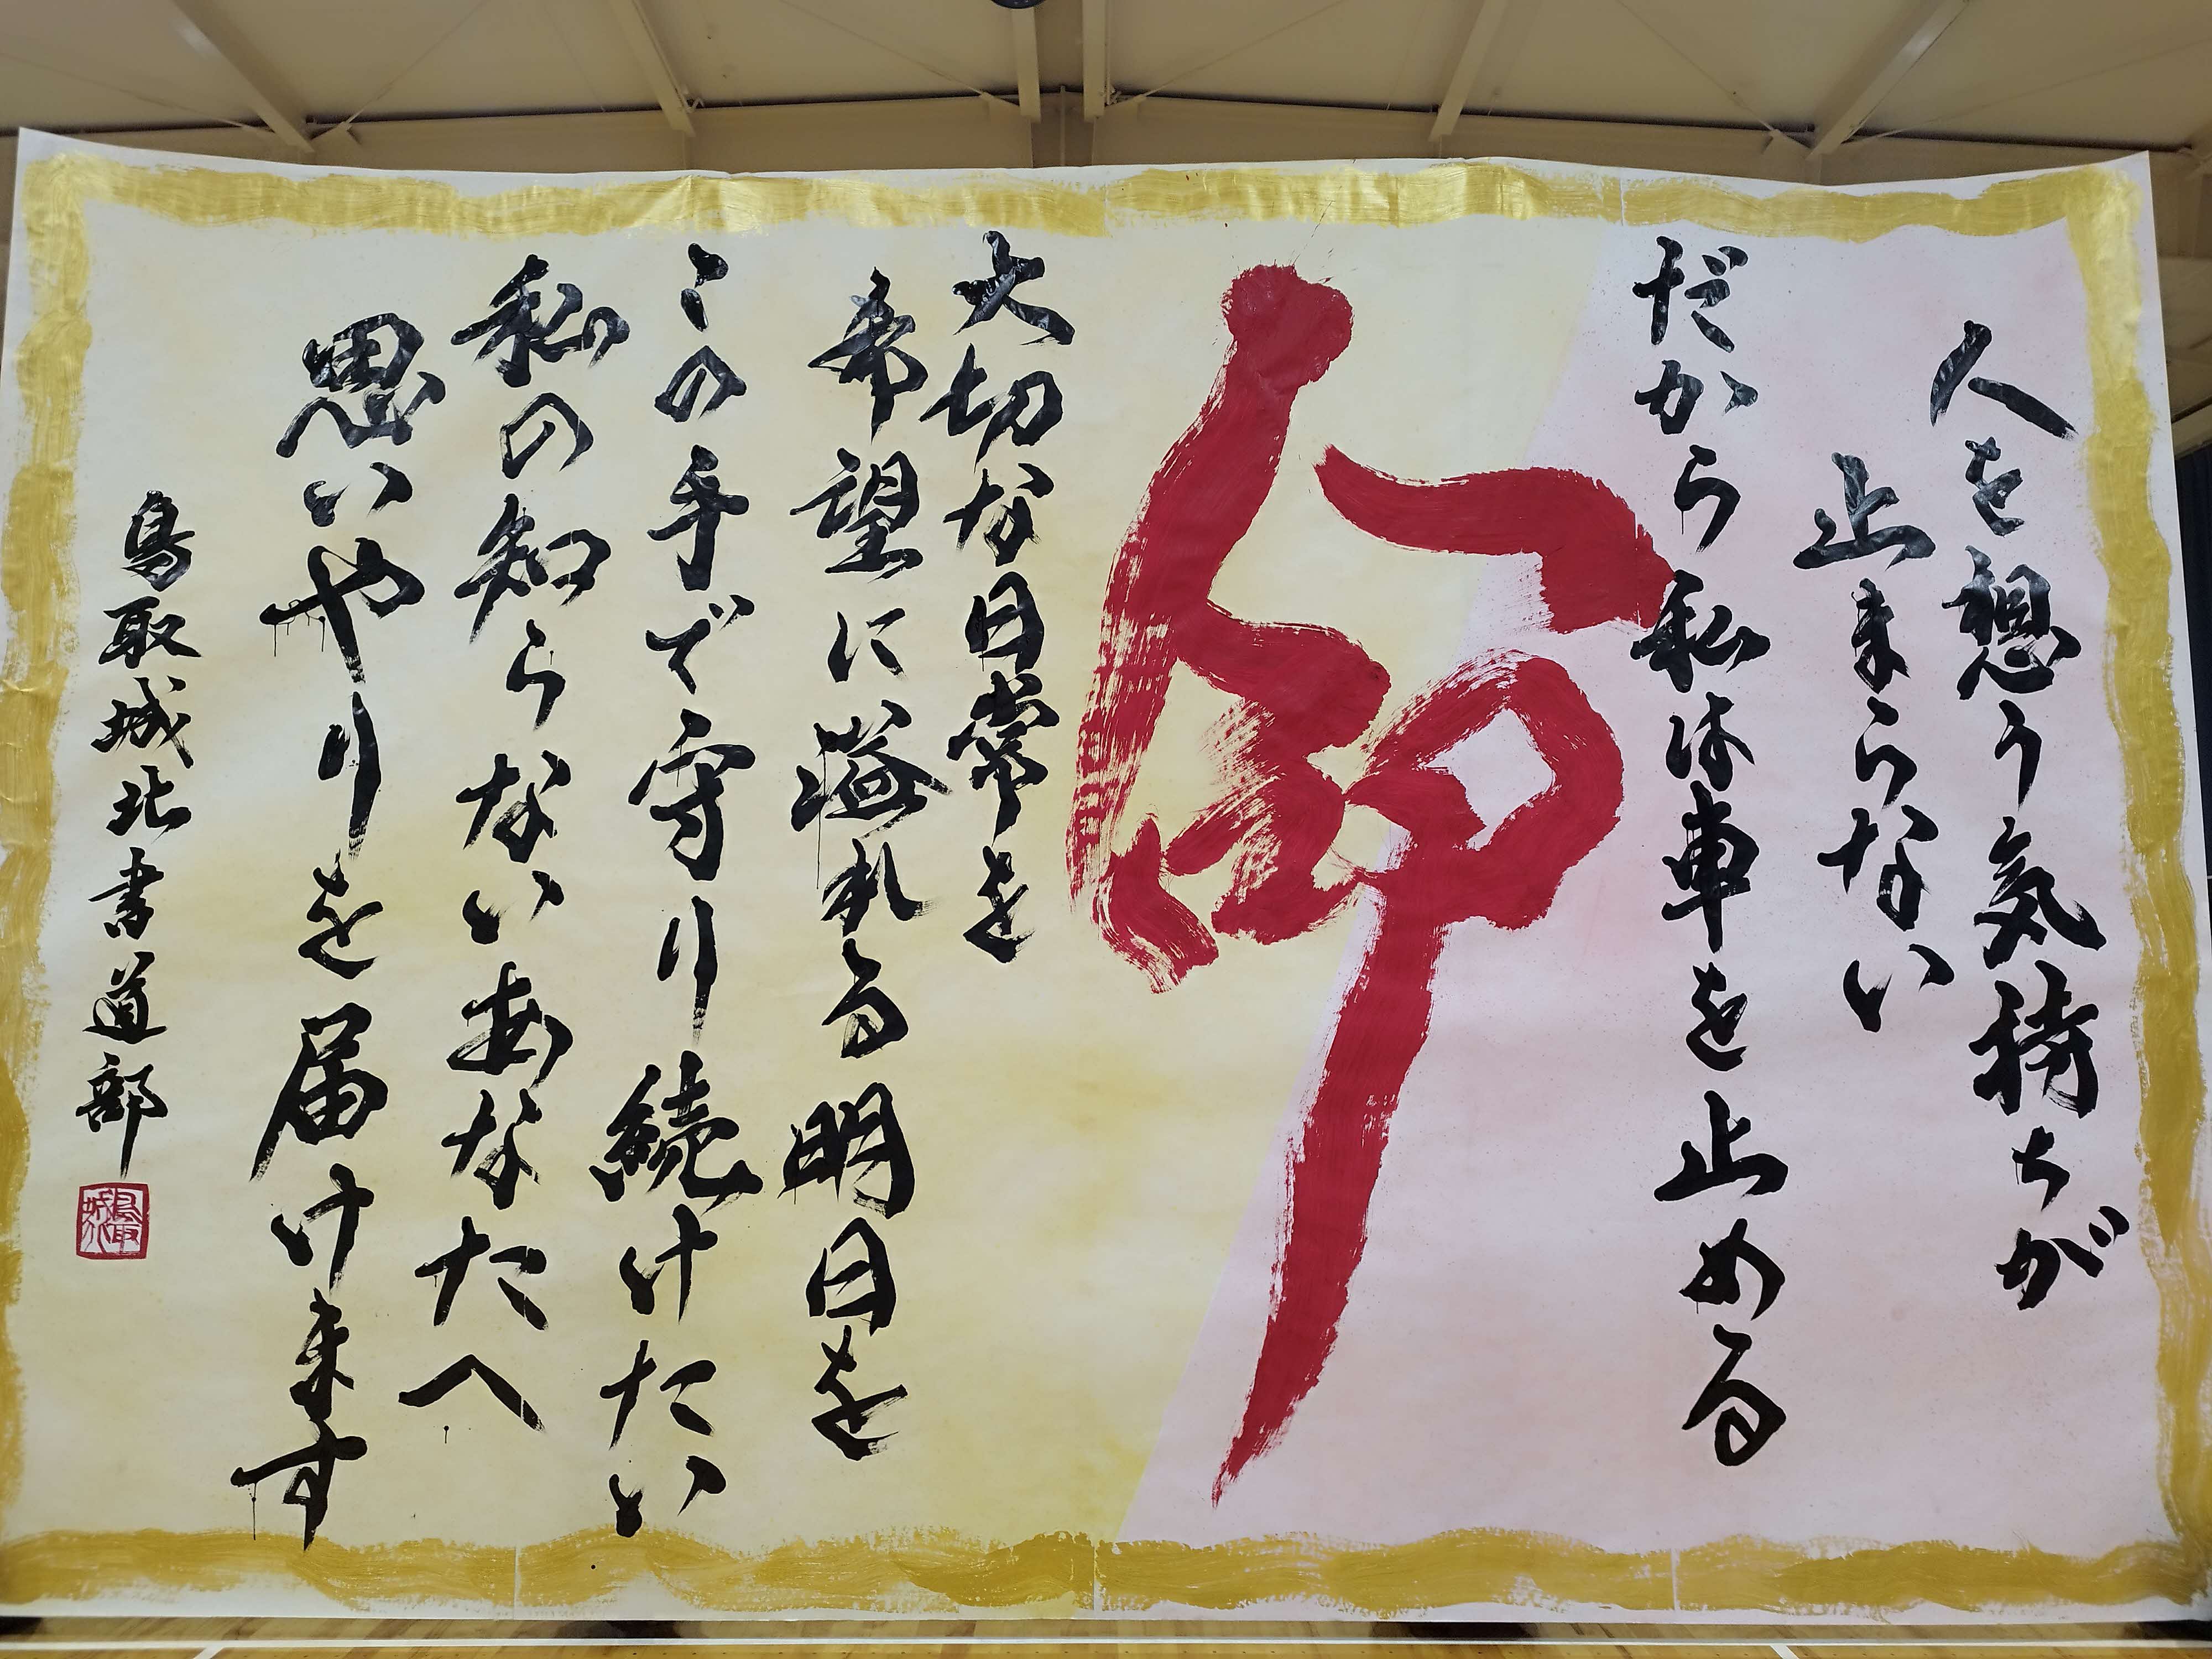 人を想う気持ちが
止まらない
だから私は車を止める
命
大切な日常を
希望に溢れる明日を
この手で守り続けたい
私の知らないあなたへ
思いやりを届けます
鳥取城北書道部
鳥取城北